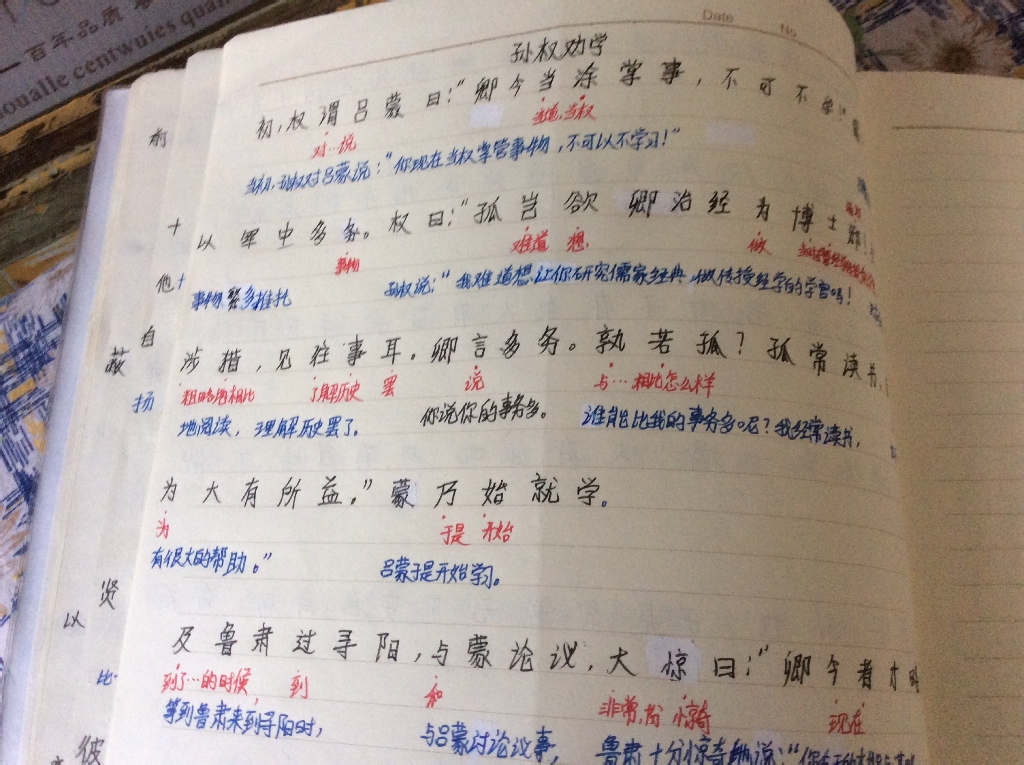 百年品质
oualle centwuies quan
Date No
孙权劝学
初,权谓吕蒙曰:"卿今当涂掌事,不可不学!"
对…说 当权
当初,孙权对吕蒙说:"你现在当权掌管事物,不可以不学习!"
以军中多务。权曰:"孤岂欲卿治经为博士邪!
事物 难道 想 做
事物繁多推托 孙权说:"我难道想让你研究儒家经典,做传授经学的学官吗!
涉措,见往事耳。卿言多务。孰若孤?孤常读书,
粗略 相比 了解历史 罢 说 与…相比怎么样
地阅读,理解历史罢了。 你说你的事务多。 谁能比我的事务多呢?我经常读书,
为大有所益。"蒙乃始就学。
为 于是 开始
有很大的帮助。" 吕蒙于是开始学习。
及鲁肃过寻阳,与蒙论议,大惊曰:"卿今者才
到了…的时候 到 和 非常,十分 惊奇 现在
等到鲁肃来到寻阳时, 与吕蒙讨论议事, 鲁肃十分惊奇地说:"你
前
十
他
自
扬
贤
以
比
彼